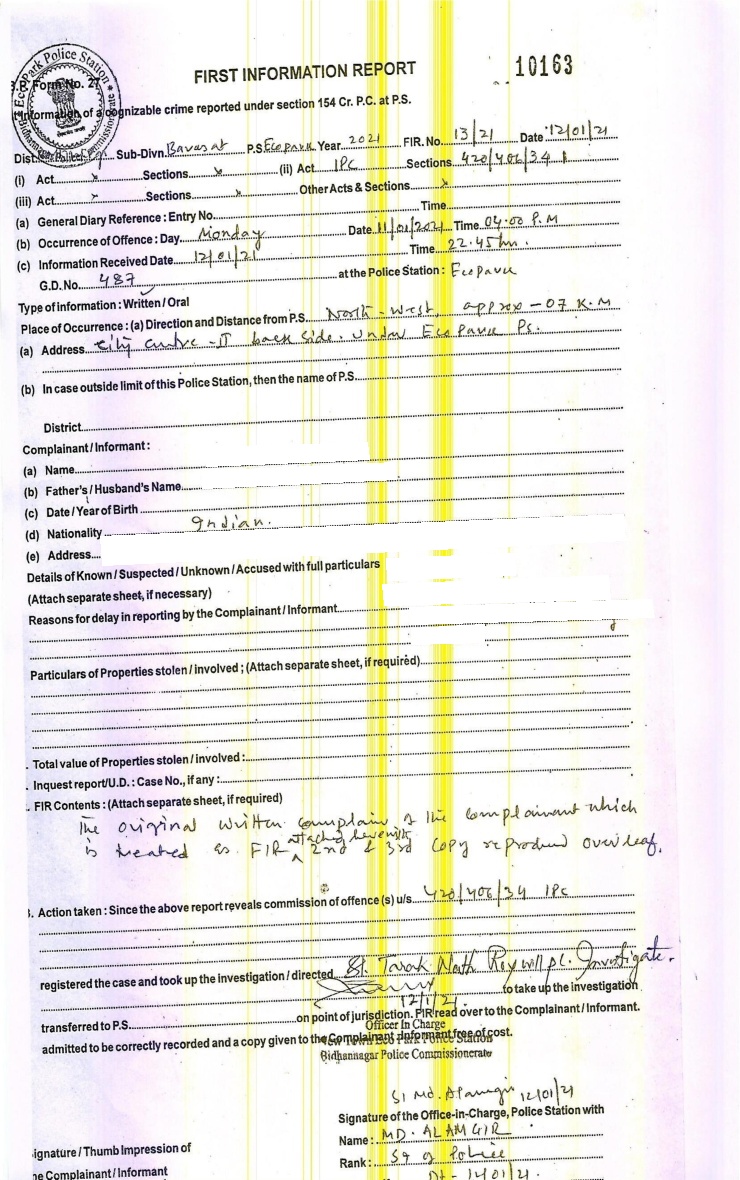 Eco Park Police Station
Bidhannagar Police Commissionerate
FIRST INFORMATION REPORT
10163
Form No. 27
Information of a cognizable crime reported under section 154 Cr. P.C. at P.S.
Dist. Sub-Divn. Barasat P.S. Ecopark Year 2021 FIR. No. 13/21 Date 12/01/21
(i) Act Sections (ii) Act IPC Sections 420/406/34
(iii) Act Sections Other Acts & Sections
(a) General Diary Reference : Entry No. Time
(b) Occurrence of Offence : Day Monday Date 11/01/2021 Time 04.00 P.M
(c) Information Received Date 12/01/21 Time 22.45 hrs.
G.D. No. 487 at the Police Station : Ecopark
Type of information : Written / Oral
Place of Occurrence : (a) Direction and Distance from P.S. North-West, approx - 07 K.M
(a) Address City Centre - II back side. under Eco Park Ps.
(b) In case outside limit of this Police Station, then the name of P.S.
District
Complainant / Informant :
(a) Name
(b) Father's / Husband's Name
(c) Date / Year of Birth
(d) Nationality Indian.
(e) Address
Details of Known / Suspected / Unknown / Accused with full particulars
(Attach separate sheet, if necessary)
Reasons for delay in reporting by the Complainant / Informant
Particulars of Properties stolen / involved ; (Attach separate sheet, if required)
. Total value of Properties stolen / involved :
. Inquest report/U.D. : Case No., if any :
. FIR Contents : (Attach separate sheet, if required)
The original written complain of the complainant which
is treated as FIR attached herewith 2nd & 3rd copy reproduced overleaf.
. Action taken : Since the above report reveals commission of offence (s) u/s 420/406/34 IPC
registered the case and took up the investigation / directed SI. Tarak Nath Roy will pl. Investigate.
12/1/21 to take up the investigation
transferred to P.S. on point of jurisdiction. FIR read over to the Complainant / Informant.
Officer In Charge
admitted to be correctly recorded and a copy given to the Complainant Informant free of cost.
Police Station
Bidhannagar Police Commissionerate
SI Md. Alamgir 12/01/21
Signature of the Office-in-Charge, Police Station with
Name : MD. ALAMGIR
ignature / Thumb Impression of
Rank : SI of Police
he Complainant / Informant